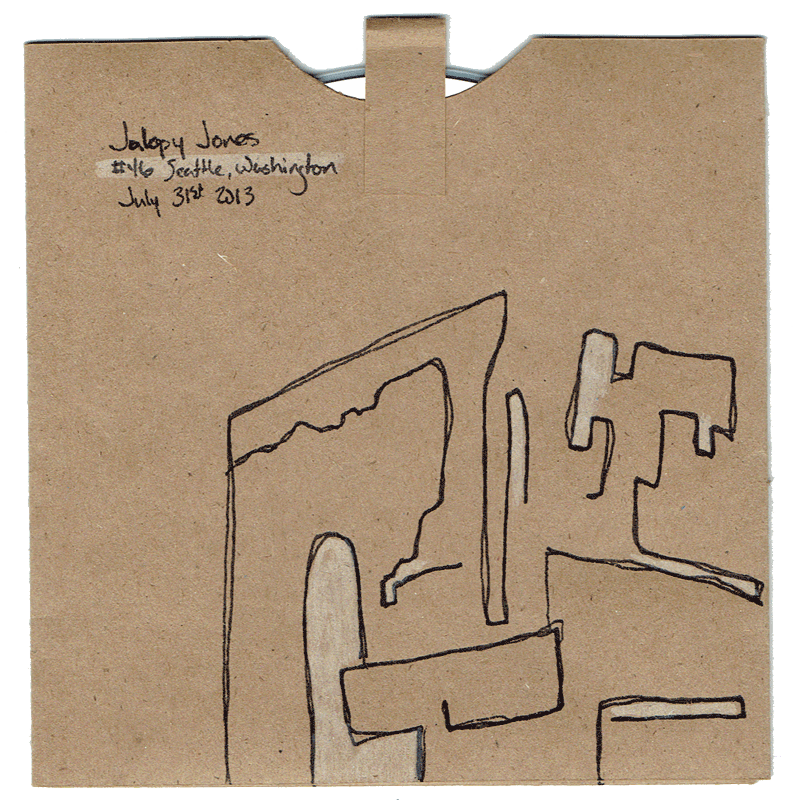 Jalopy Jones
#46 Seattle, Washington
July 31st 2013